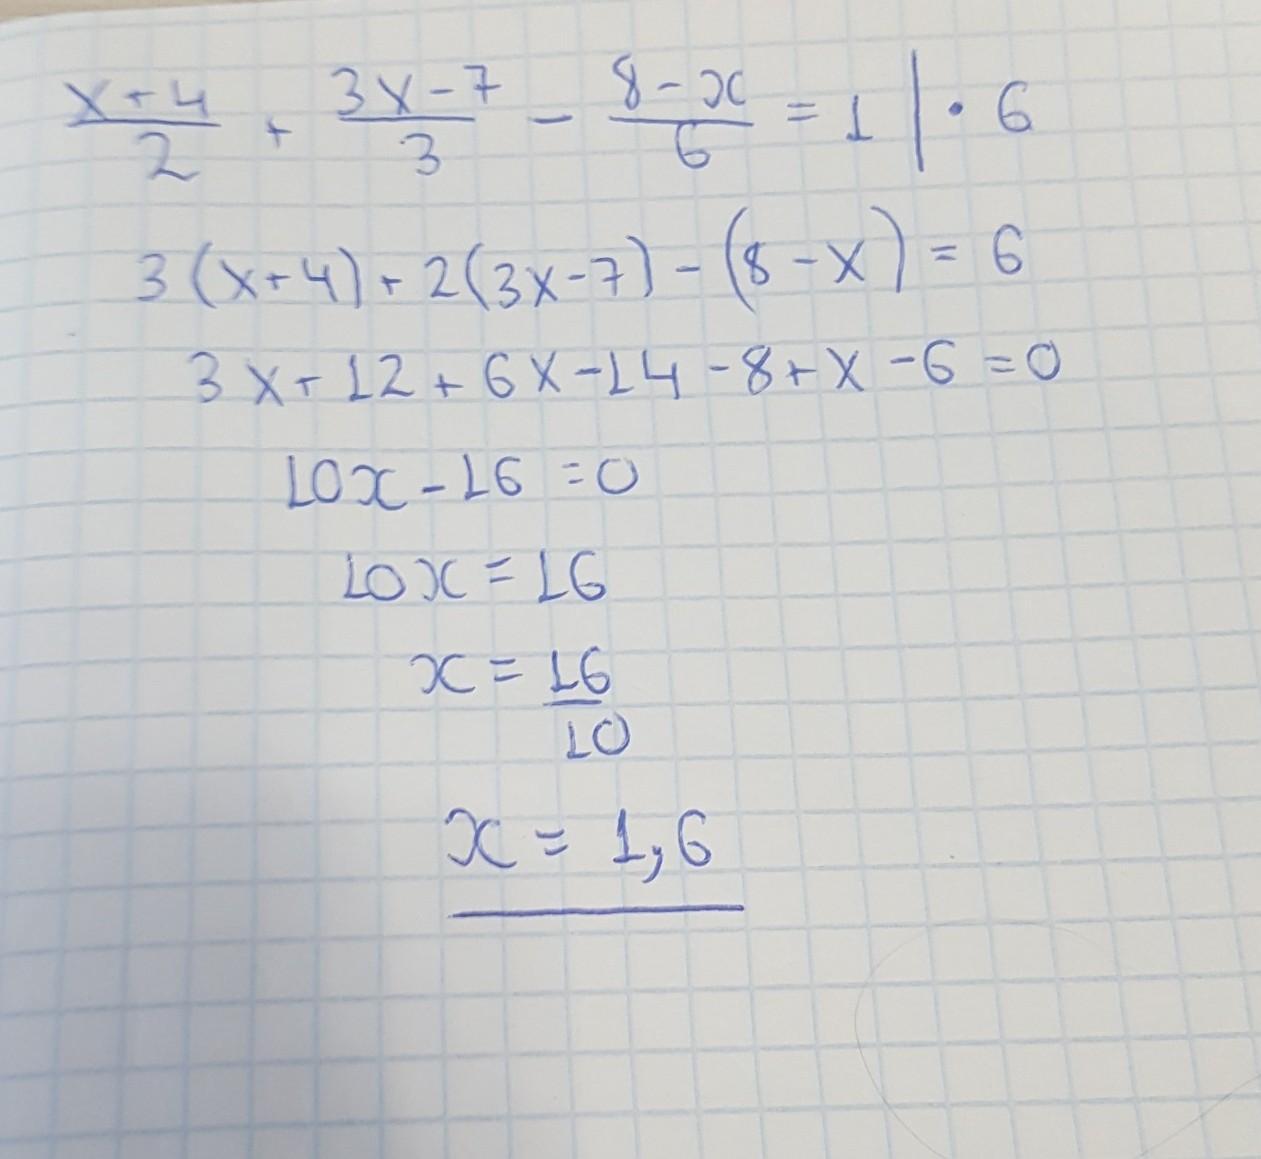 (x+4)/2 + (3x-7)/3 - (8-x)/6 = 1 | · 6
3(x+4)+2(3x-7)-(8-x)=6
3x+12+6x-14-8+x-6=0
10x-16=0
10x=16
x=16/10
x=1,6